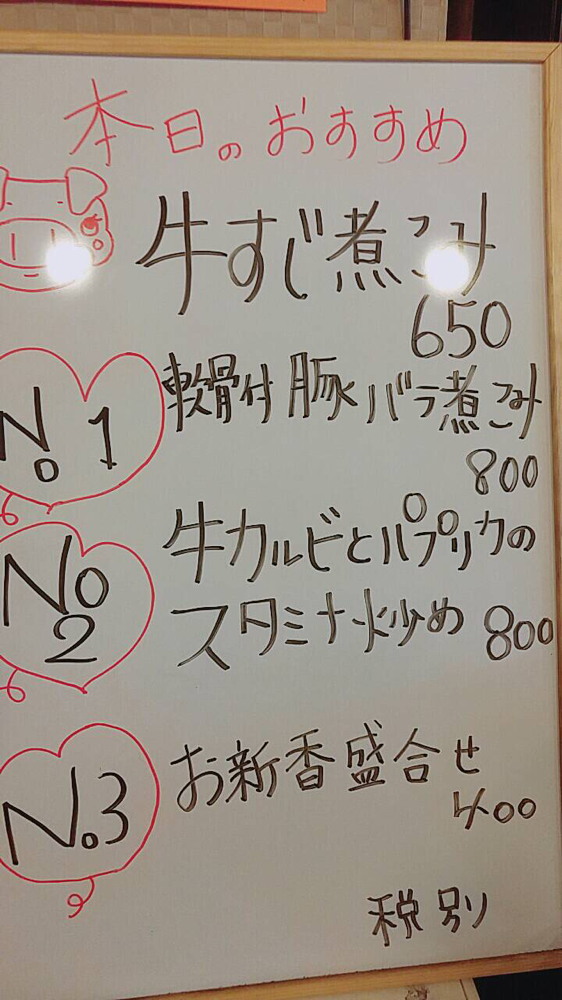 本日のおすすめ
牛すじ煮こみ
650
No 1
軟骨付豚バラ煮こみ
800
No 2
牛カルビとパプリカの
スタミナ炒め 800
No.3
お新香盛合せ
400
税別